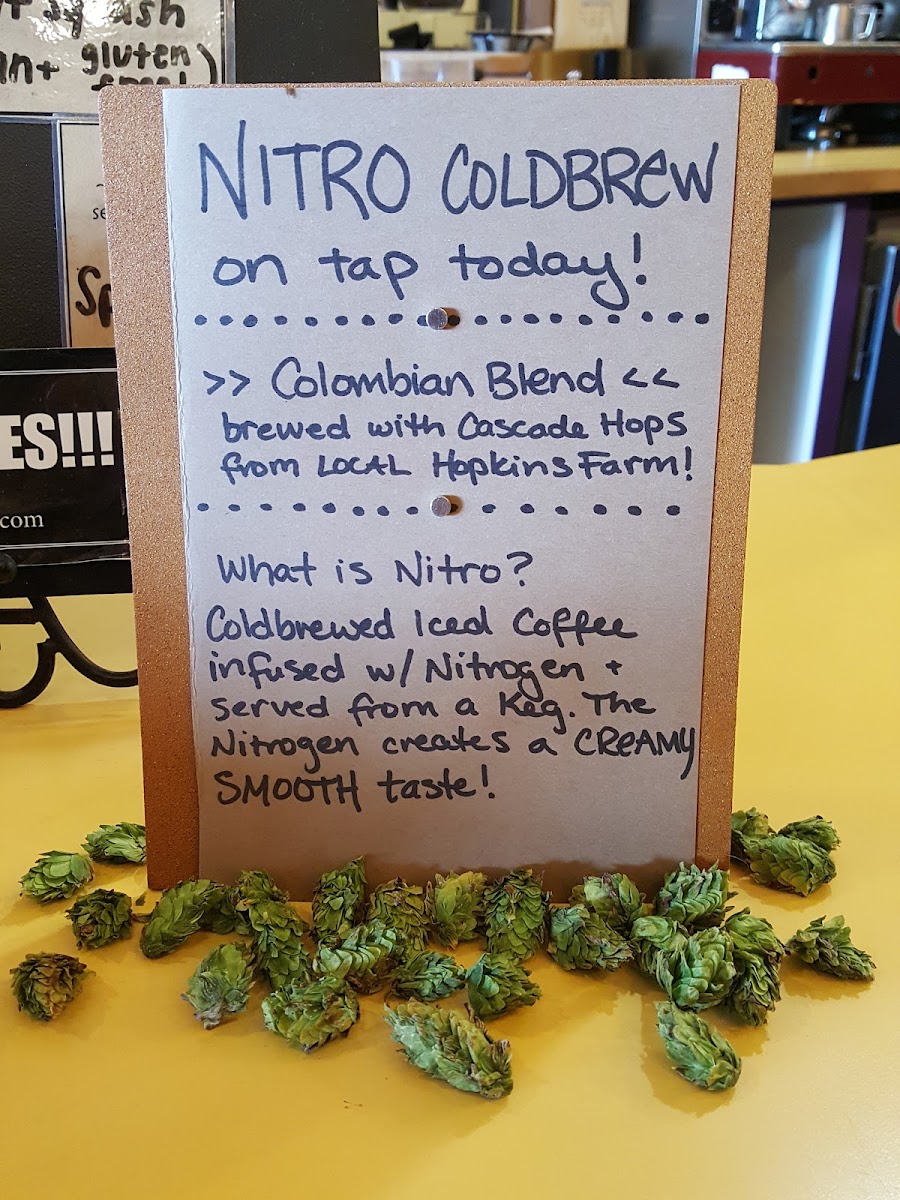 sh
gluten
NITRO COLDBREW
on tap today!
>> Colombian Blend <<
brewed with Cascade Hops
from LOCAL Hopkins Farm!
What is Nitro?
Coldbrewed Iced Coffee
infused w/ Nitrogen +
served from a Keg. The
Nitrogen creates a CREAMY
SMOOTH taste!
se
Sp
ES!!!
.com